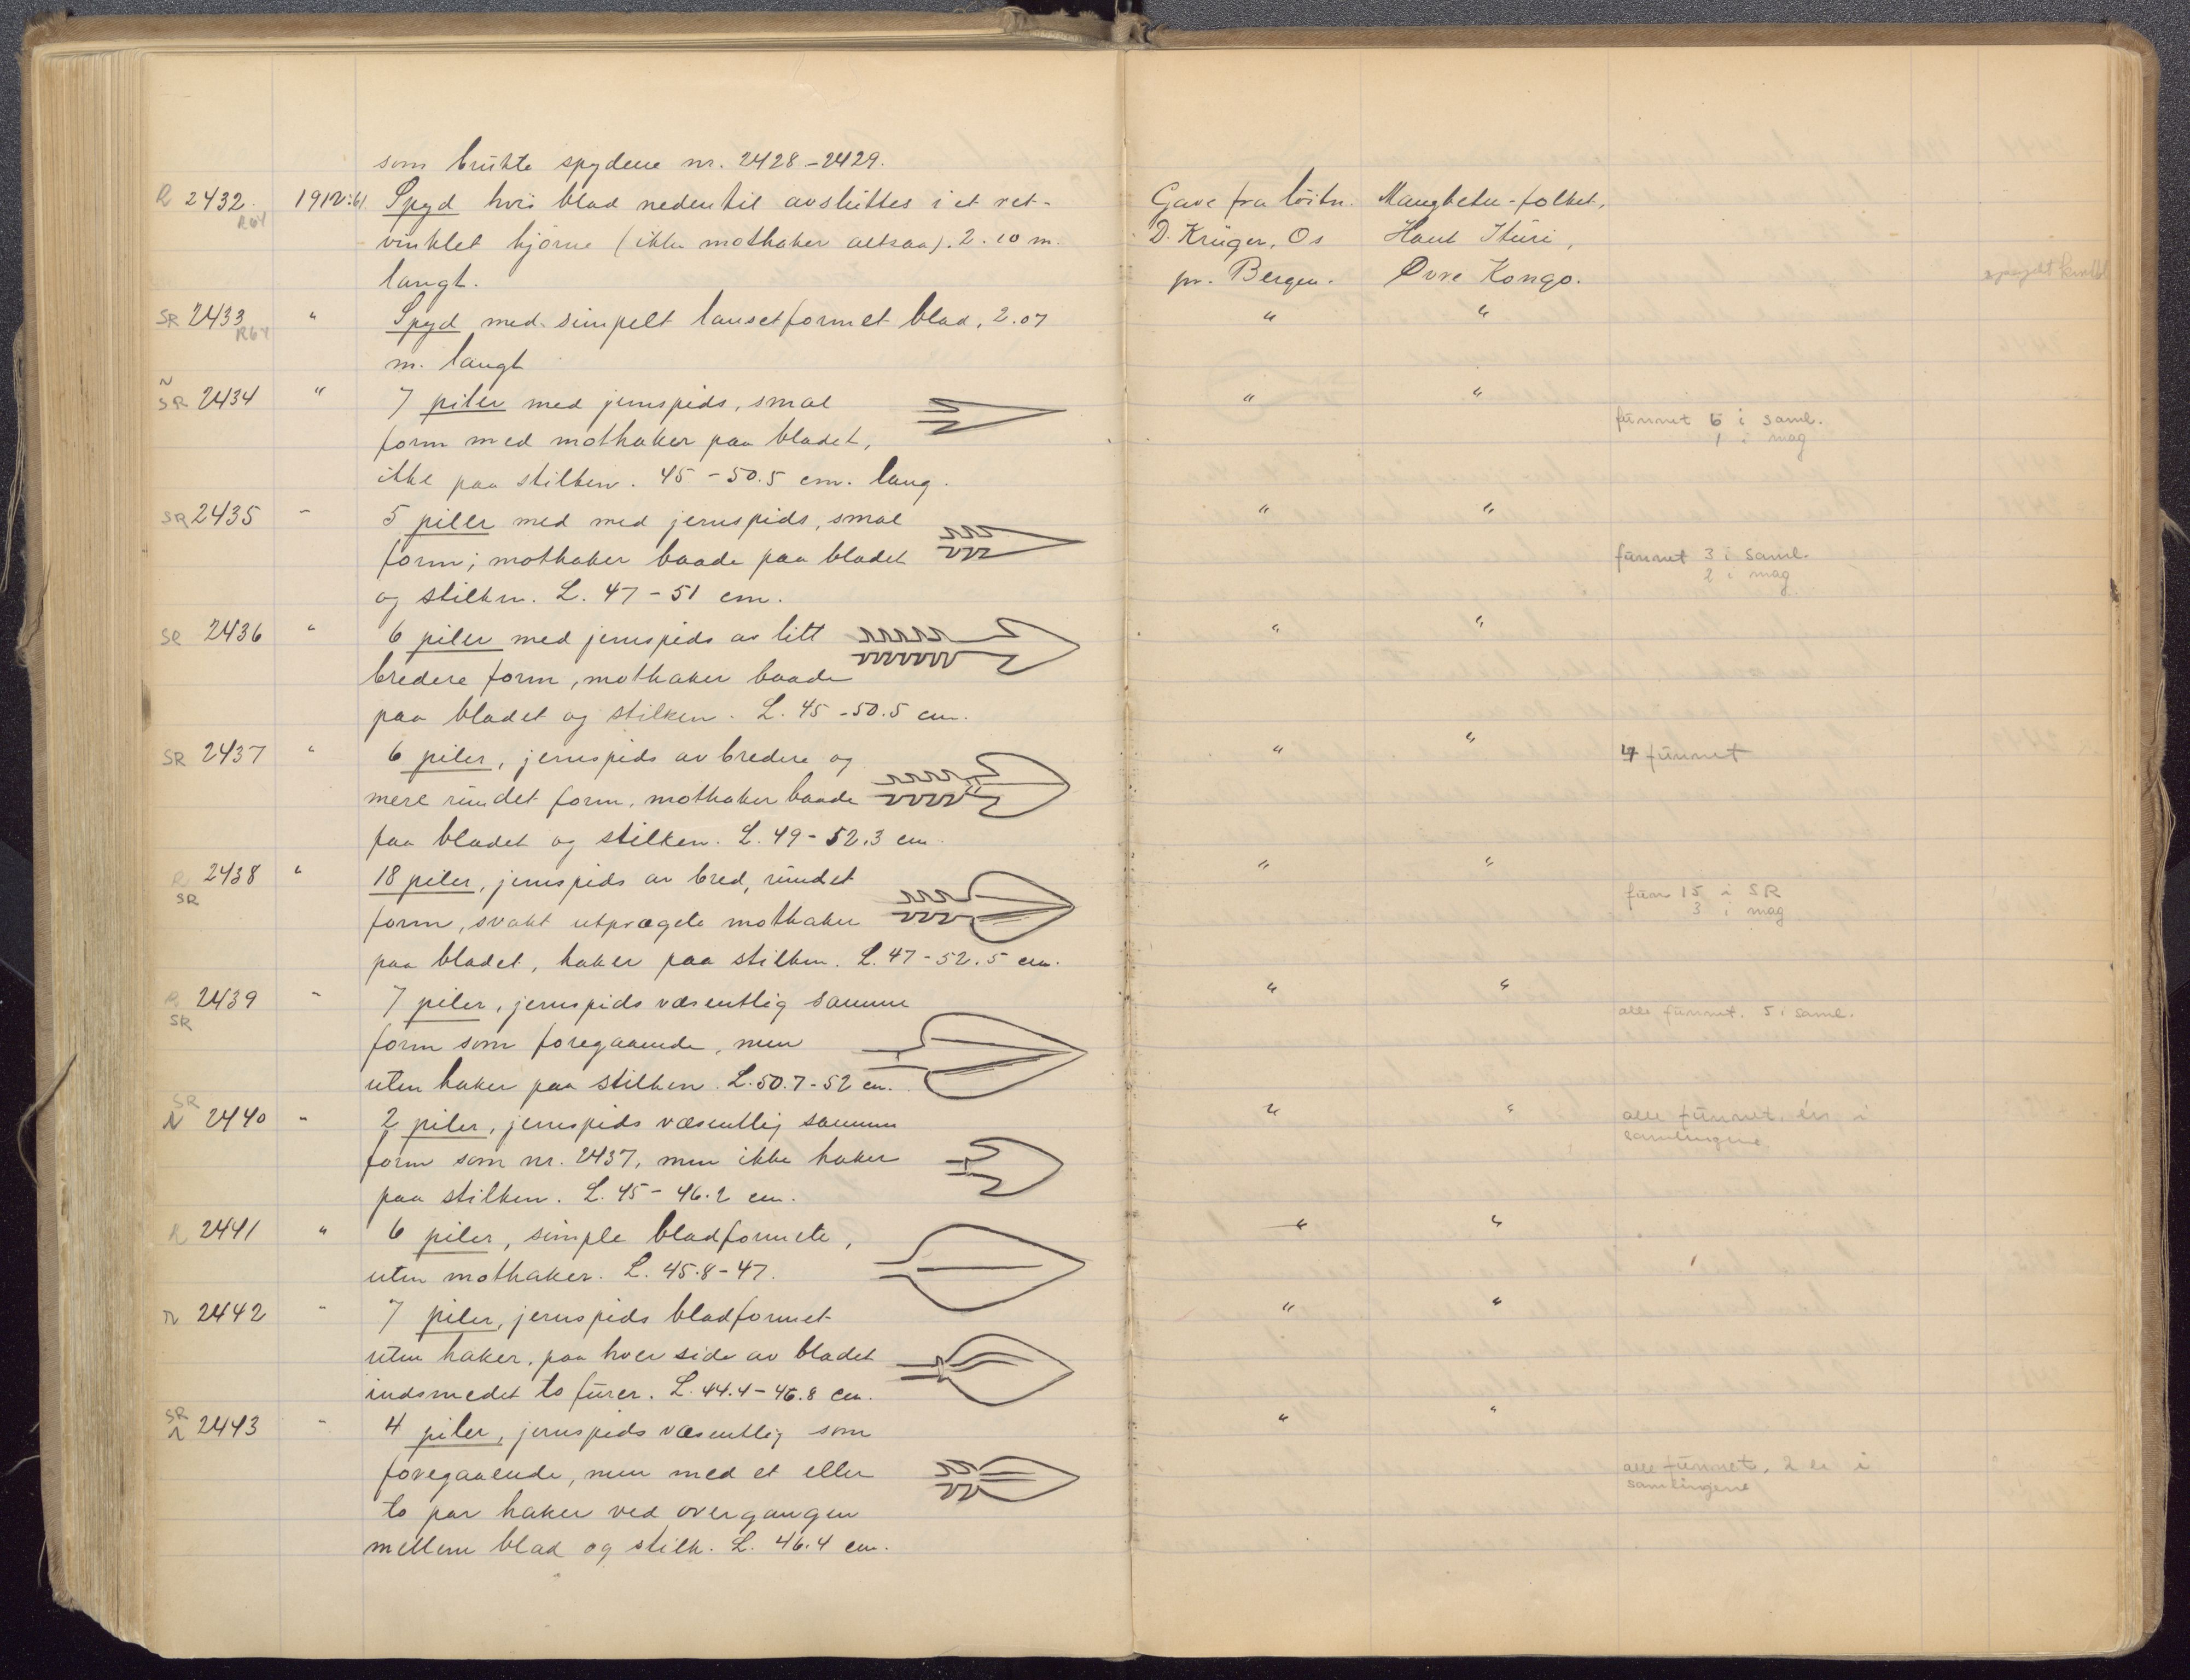 som brukte spydene nr. 2428-2429.
R 2432. 1912:61. Spyd hvis blad nedentil avsluttes i et ret- Gave fra löitn. Mangbetu-folket,
R64
vinklet hjörne (ikke mothaker altsaa). 2.10 m. D. Krüger, Os Haut Ituri,
langt. pr. Bergen. Øvre Kongo.
SR 2433 " Spyd med simpelt lansetformet blad, 2.07 " "
R64
m. langt
N
SR 2434 " 7 piler med jernspids, smal " "
form med mothaker paa bladet, funnet 6 i saml.
1 i mag
ikke paa stilken. 45-50.5 cm. lang.
SR 2435 " 5 piler med med jernspids, smal " "
form; mothaker baade paa bladet funnet 3 i saml.
2 i mag
og stilken. L. 47-51 cm.
SR 2436 " 6 piler med jernspids av litt " "
bredere form, mothaker baade
paa bladet og stilken. L. 45-50.5 cm.
SR 2437 " 6 piler, jernspids av bredere og " " 4 funnet
mere rundet form, mothaker baade
paa bladet og stilken. L. 49-52.3 cm.
R 2438 " 18 piler, jernspids av bred, rundet " "
SR
form, svakt utprægete mothaker fun 15 i SR
3 i mag
paa bladet, haker paa stilken. L. 47-52.5 cm.
R 2439 " 7 piler, jernspids væsentlig samme " " alle funnet. 5 i saml.
SR
form som foregaaende, men
uten haker paa stilken. L. 50.7-52 cm.
SR
N 2440 " 2 piler, jernspids væsentlig samme " " alle funnet, én i
samlingene.
form som nr. 2437, men ikke haker
paa stilken. L. 45-46.2 cm.
R 2441 " 6 piler, simple bladformete, " "
uten mothaker. L. 45.8-47.
R 2442 " 7 piler, jernspids bladformet " "
uten haker, paa hver side av bladet
indsmedet to furer. L. 44.4-46.8 cm.
SR
R 2443 " 4 piler, jernspids væsentlig som " "
foregaaende, men med et eller alle funnet, 2 er i
samlingene
to par haker ved overgangen
mellem blad og stilk. L. 46.4 cm.